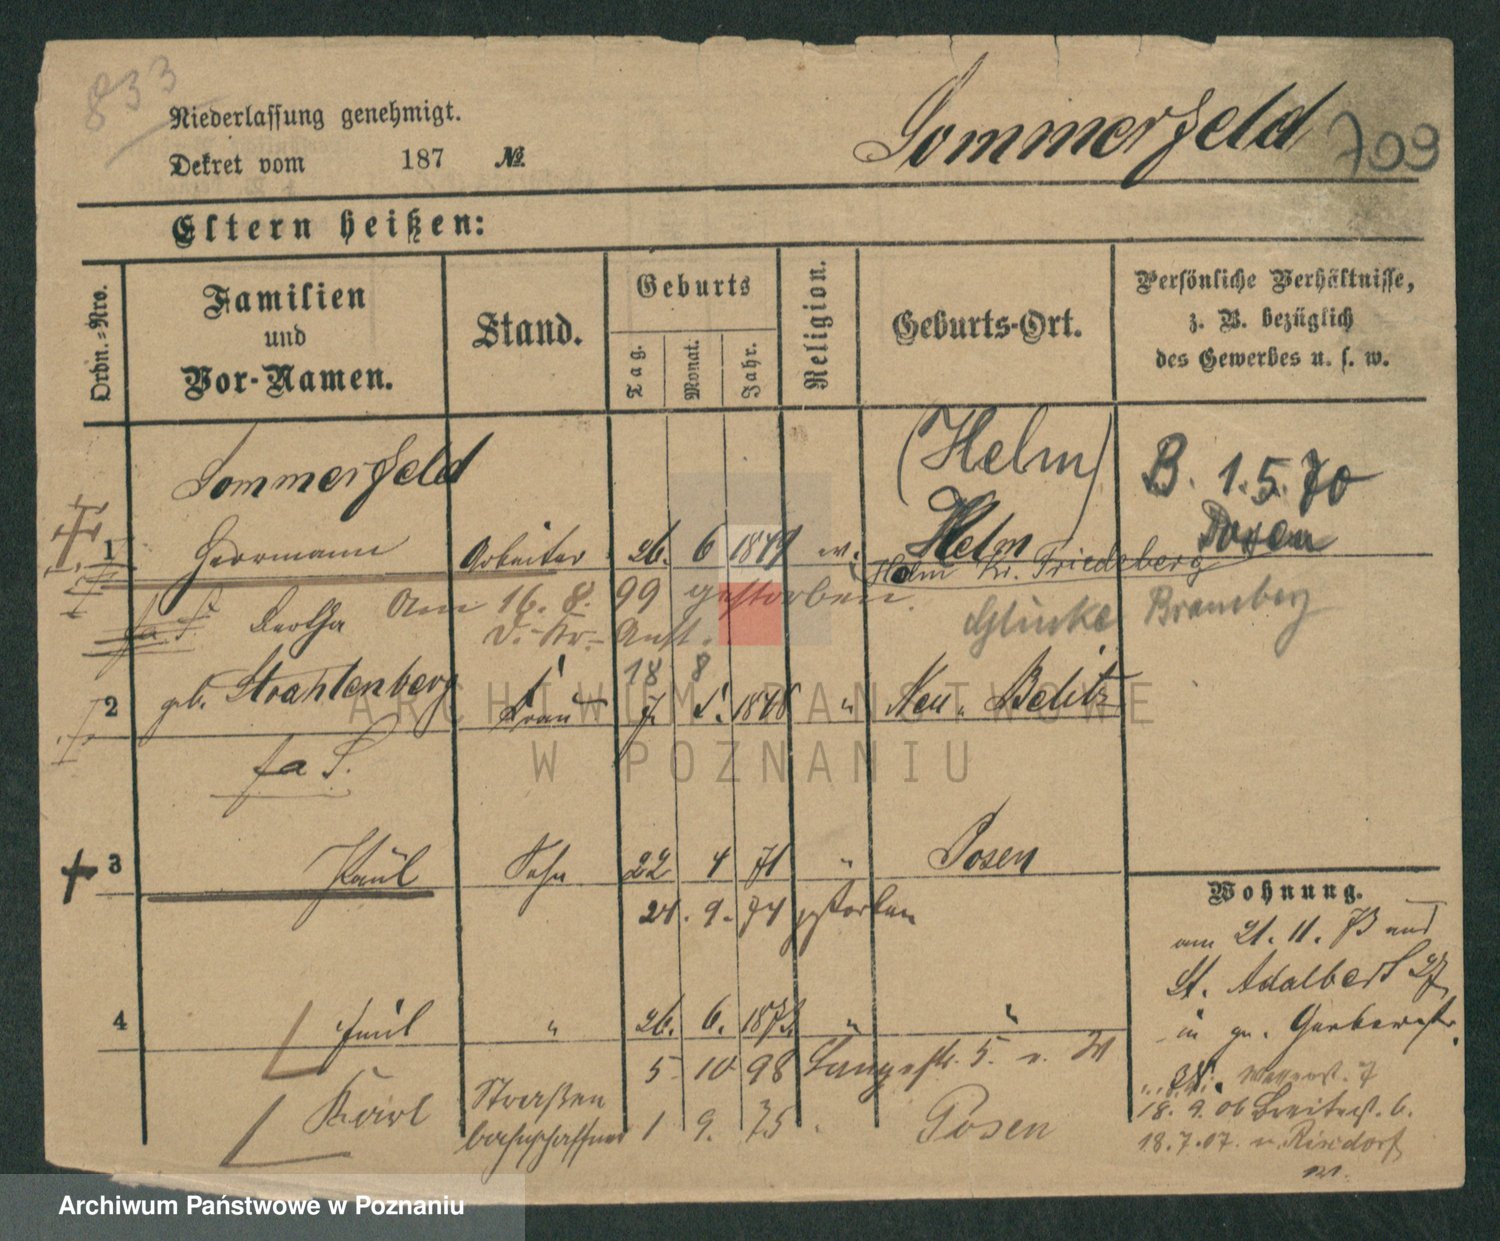 833
Niederlassung genehmigt.
Dekret vom 187 №
Sommerfeld 709
Eltern heißen:
Ordn.-Nro.
Familien und Vor-Namen.
Stand.
Geburts
Tag. Monat. Jahr.
Religion.
Geburts-Ort.
Persönliche Verhältnisse,
z. B. bezüglich
des Gewerbes u. s. w.
Sommerfeld (Helm) B. 1.5.70
1 Herrmann Arbeiter 26. 6 Helm Posen
Helm Kr. Friedeberg
Am 16. 8. 99 gestorben. Glinke Bromberg
Bertha
18 8
2 geb. Strahlenberg Frau 1848 " Neu Belitz
fa S.
3 Paul Sohn 22 4 71 " Posen
24. 9. 74 gestorben
Wohnung.
am 21. 11. 73 und
St. Adalbert 27
4 Emil " 26. 6. 1873. " "
5 10 98 Langestr. 5. v. W
Karl Straßen
bahnschaffner 1 9. 75 Posen
18. 9. 06 Breitestr. 6.
18.7.07. n. Rixdorf
ARCHIWUM PAŃSTWOWE
W POZNANIU
Archiwum Państwowe w Poznaniu